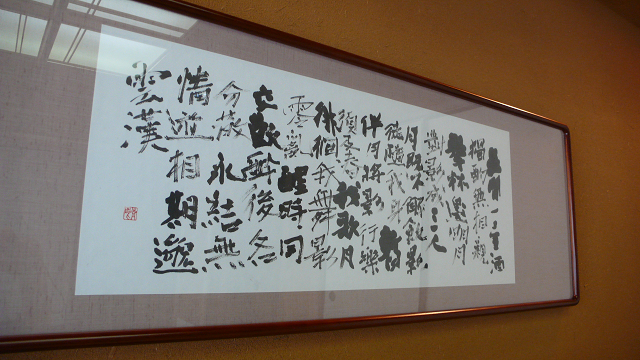 花間一壺酒
獨酌無相親
舉杯邀明月
對影成三人
月既不解飲影
徒隨我身暫
伴月將影行樂
須及春我歌月
徘徊我舞影
零亂醒時同
交歡醉後各
分散永結無
情遊相期邈
雲漢